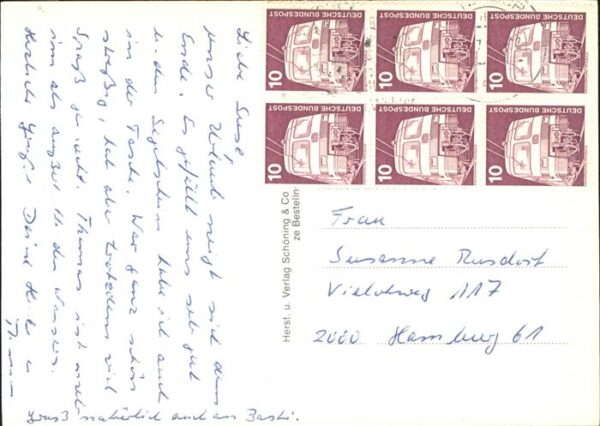 Liebe Suse,
unser Urlaub neigt sich dem
Ende. Es gefällt uns sehr gut
den Segelschein habe ich auch
in der Tasche. War ganz schön
streßig, hat aber trotzdem viel
Spaß gemacht. Thomas ist mehr
im als außer dem Wasser.
Herzliche Grüße Deine
Gruß natürlich auch an Basti.
Herst. u. Verlag Schöning & Co
ze Bestelln
DEUTSCHE BUNDESPOST 10
DEUTSCHE BUNDESPOST 10
DEUTSCHE BUNDESPOST 10
DEUTSCHE BUNDESPOST 10
DEUTSCHE BUNDESPOST 10
DEUTSCHE BUNDESPOST 10
Frau
Susanne Rusdorf
Vielohweg 117
2000 Hamburg 61